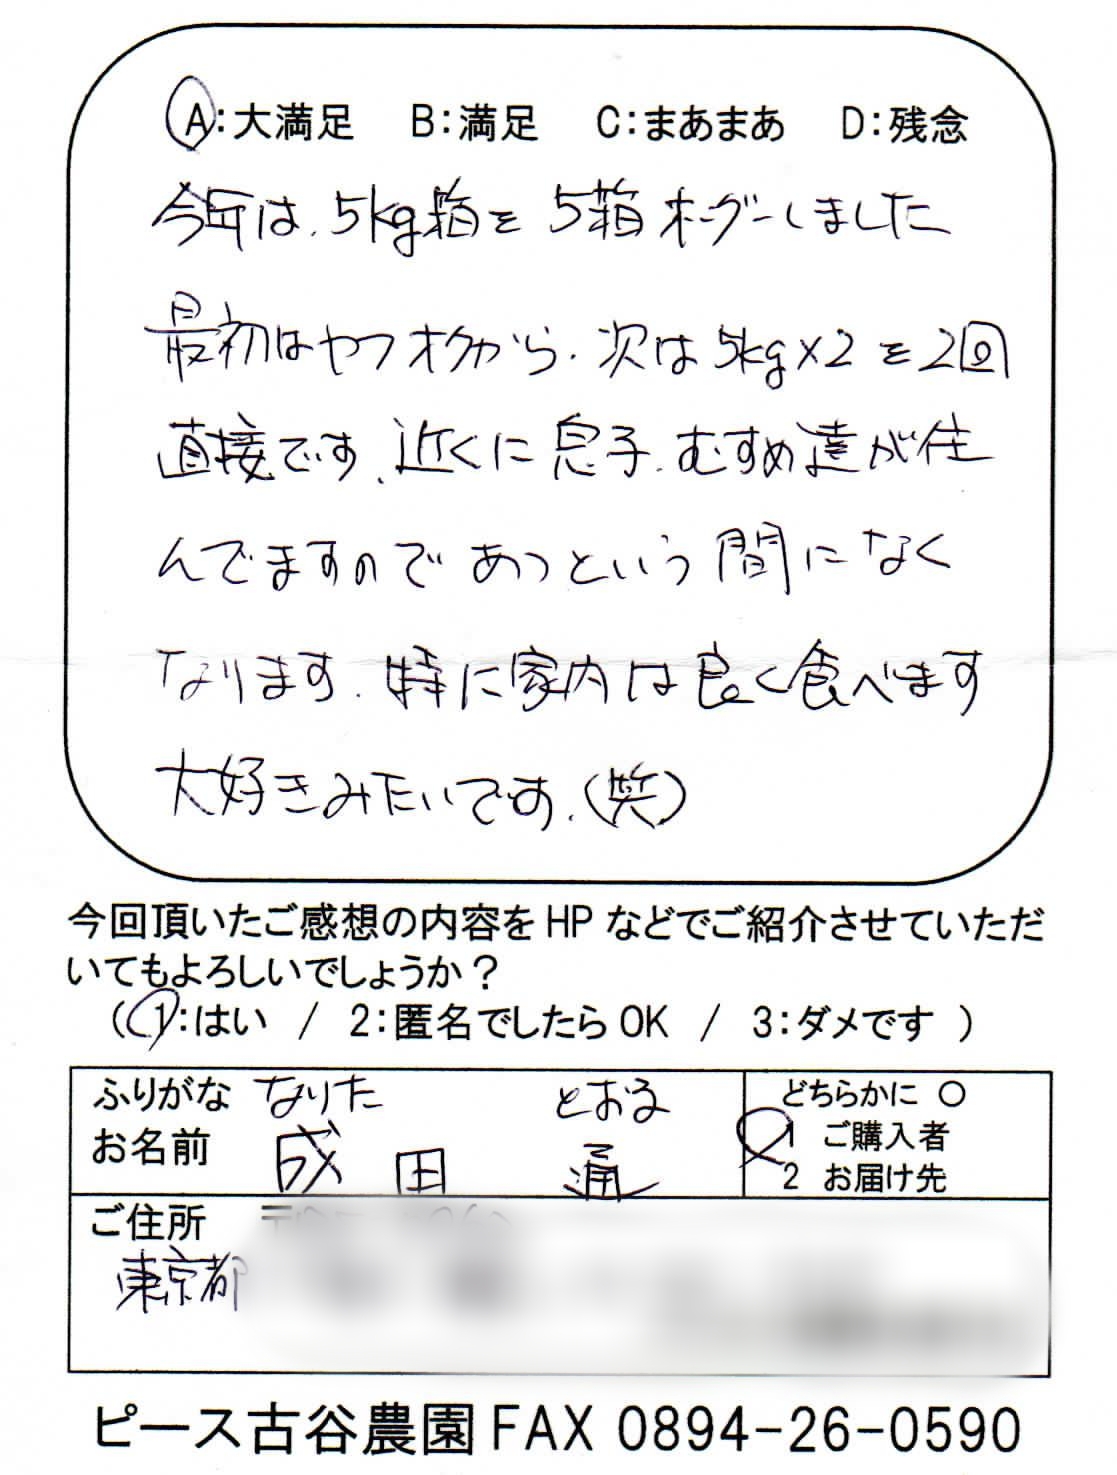 A:大満足 B:満足 C:まあまあ D:残念
今年は、5kg箱を5箱オーダーしました
最初はヤフオクから、次は5kg×2を2回
直接です、近くに息子、むすめ達が住
んでますのであっという間になく
なります、特に家内は良く食べます
大好きみたいです、(笑)
今回頂いたご感想の内容をHPなどでご紹介させていただ
いてもよろしいでしょうか?
(1:はい / 2:匿名でしたらOK / 3:ダメです )
ふりがな なりた とおる
お名前 成田 通
どちらかに ○
1 ご購入者
2 お届け先
ご住所
東京都
ピース古谷農園 FAX 0894-26-0590